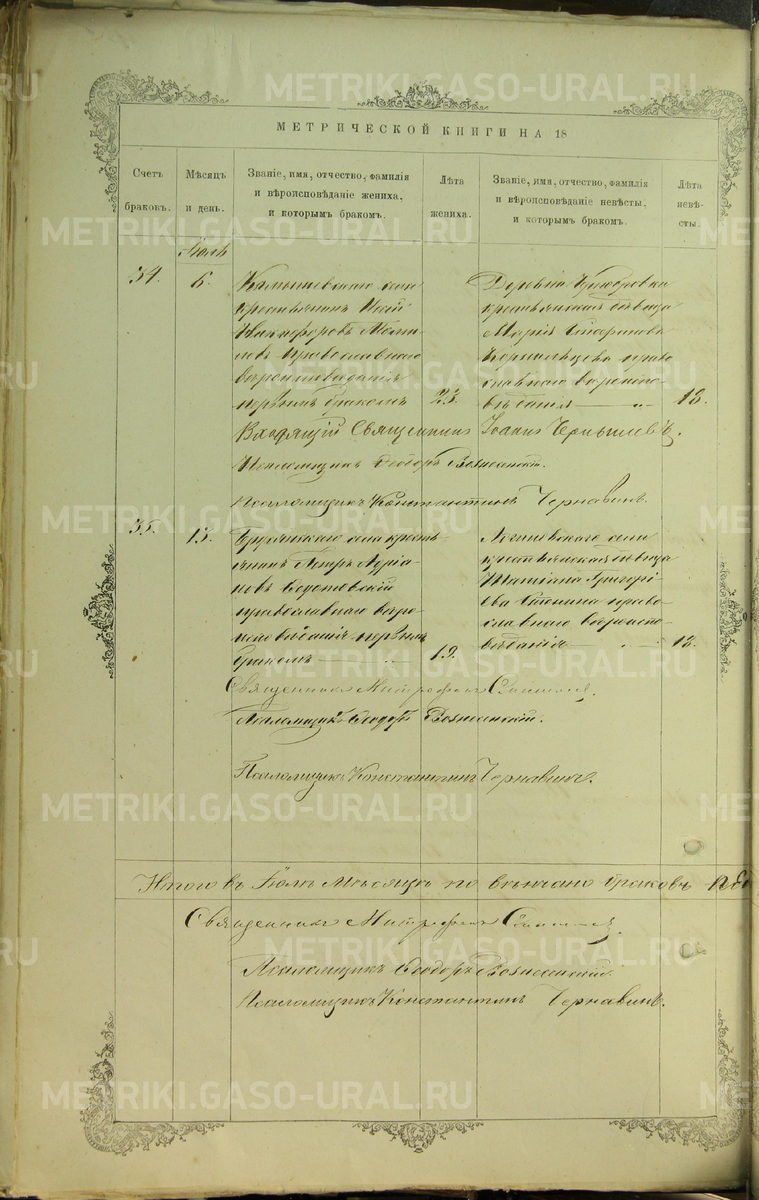 МЕТРИЧЕСКОЙ КНИГИ НА 18
Счетъ браковъ.
Мѣсяцъ и день.
Званіе, имя, отчество, фамилія и вѣроисповѣданіе жениха, и которымъ бракомъ.
Лѣта жениха.
Званіе, имя, отчество, фамилія и вѣроисповѣданіе невѣсты, и которымъ бракомъ.
Лѣта невѣсты.
Іюль
34.
6.
Камышевскаго села
крестьянинъ
Никифоровъ
православнаго
вѣроисповѣданія
первымъ бракомъ
23.
Деревни
крестьянская дѣвица
Марія Стефанова
право
славнаго вѣроиспо
вѣданія
18.
Входящій Священникъ Іоаннъ Чернышевъ.
Псаломщикъ Ѳеодоръ Вознесенскій.
Псаломщикъ Константинъ Чернавинъ.
35.
13.
села кресть
янинъ Петръ Адріа
новъ
православнаго вѣро
исповѣданія первымъ
бракомъ
19.
Логиновскаго села
крестьянская дѣвица
Татіана Григорі
ева право
славнаго вѣроиспо
вѣданія
18.
Священникъ Митрофанъ
Псаломщикъ Ѳеодоръ Вознесенскій.
Псаломщикъ Константинъ Чернавинъ.
Итого въ Іюлѣ мѣсяцѣ по вѣнчано браковъ
Священникъ Митрофанъ
Псаломщикъ Ѳеодоръ Вознесенскій.
Псаломщикъ Константинъ Чернавинъ.
METRIKI.GASO-URAL.RU